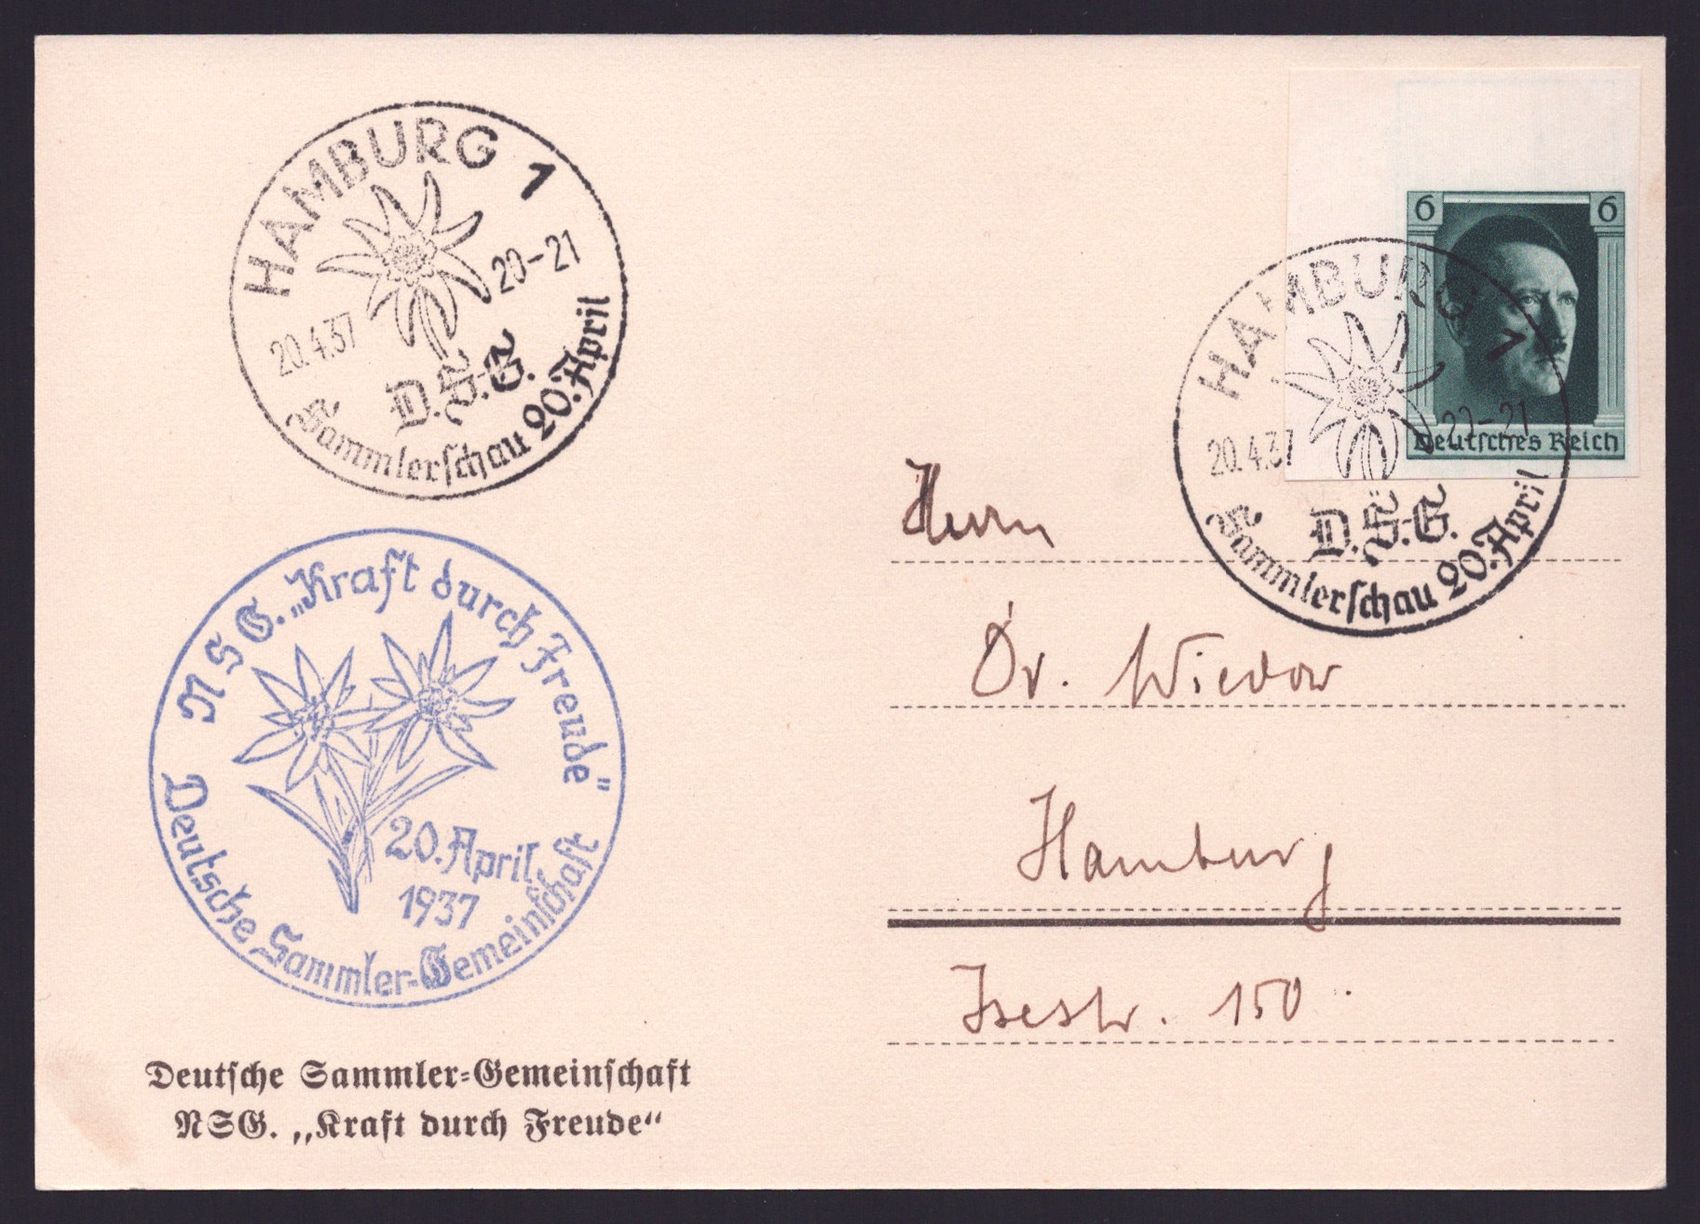 HAMBURG 1
20.4.37
20-21
D.S.G.
Sammlerschau 20. April
6 6
Deutsches Reich
HAMBURG 1
20.4.37
20-21
D.S.G.
Sammlerschau 20. April
Herrn
Dr. Wiedow
Hamburg
Isestr. 150.
NSG. „Kraft durch Freude"
20. April
1937
Deutsche Sammler-Gemeinschaft
Deutsche Sammler-Gemeinschaft
NSG. „Kraft durch Freude“